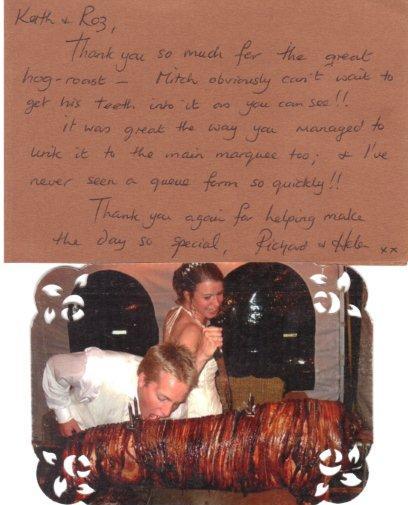 Keith & Roz,
Thank you so much for the great
hog-roast – Mitch obviously can't wait to
get his teeth into it as you can see!!
it was great the way you managed to
link it to the main marquee too; & I've
never seen a queue form so quickly!!
Thank you again for helping make
the day so special, Richard & Helen xx